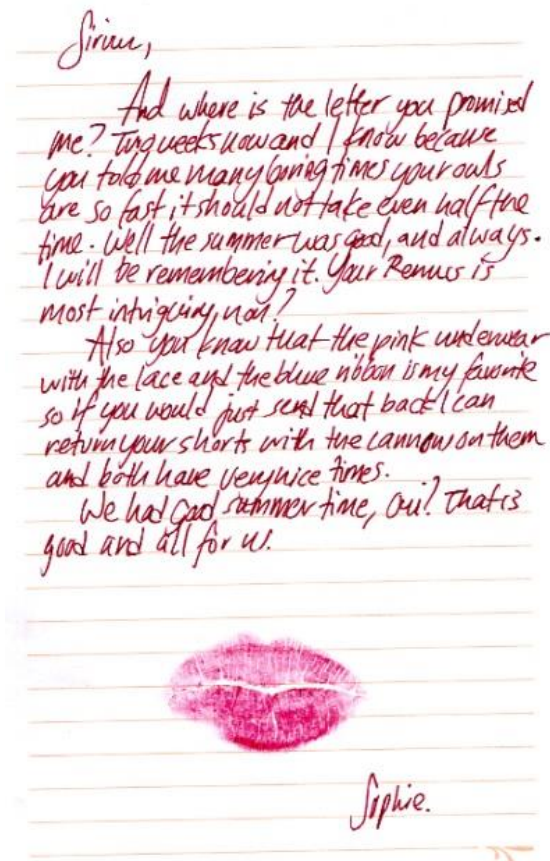 Sirius,
And where is the letter you promised
me? Two weeks now and I know because
you told me many boring times your owls
are so fast it should not take even half the
time. Well the summer was good, and always.
I will be remembering it. Your Remus is
most intriguing, non?
Also you know that the pink underwear
with the lace and the blue ribbon is my favorite
so if you would just send that back I can
return your shorts with the cannow on them
and both have very nice times.
We had good summer time, oui? That is
good and all for us.
Sophie.